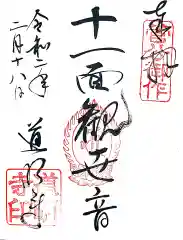 奉拝
十一面観世音
令和二年
二月十八日
道明寺